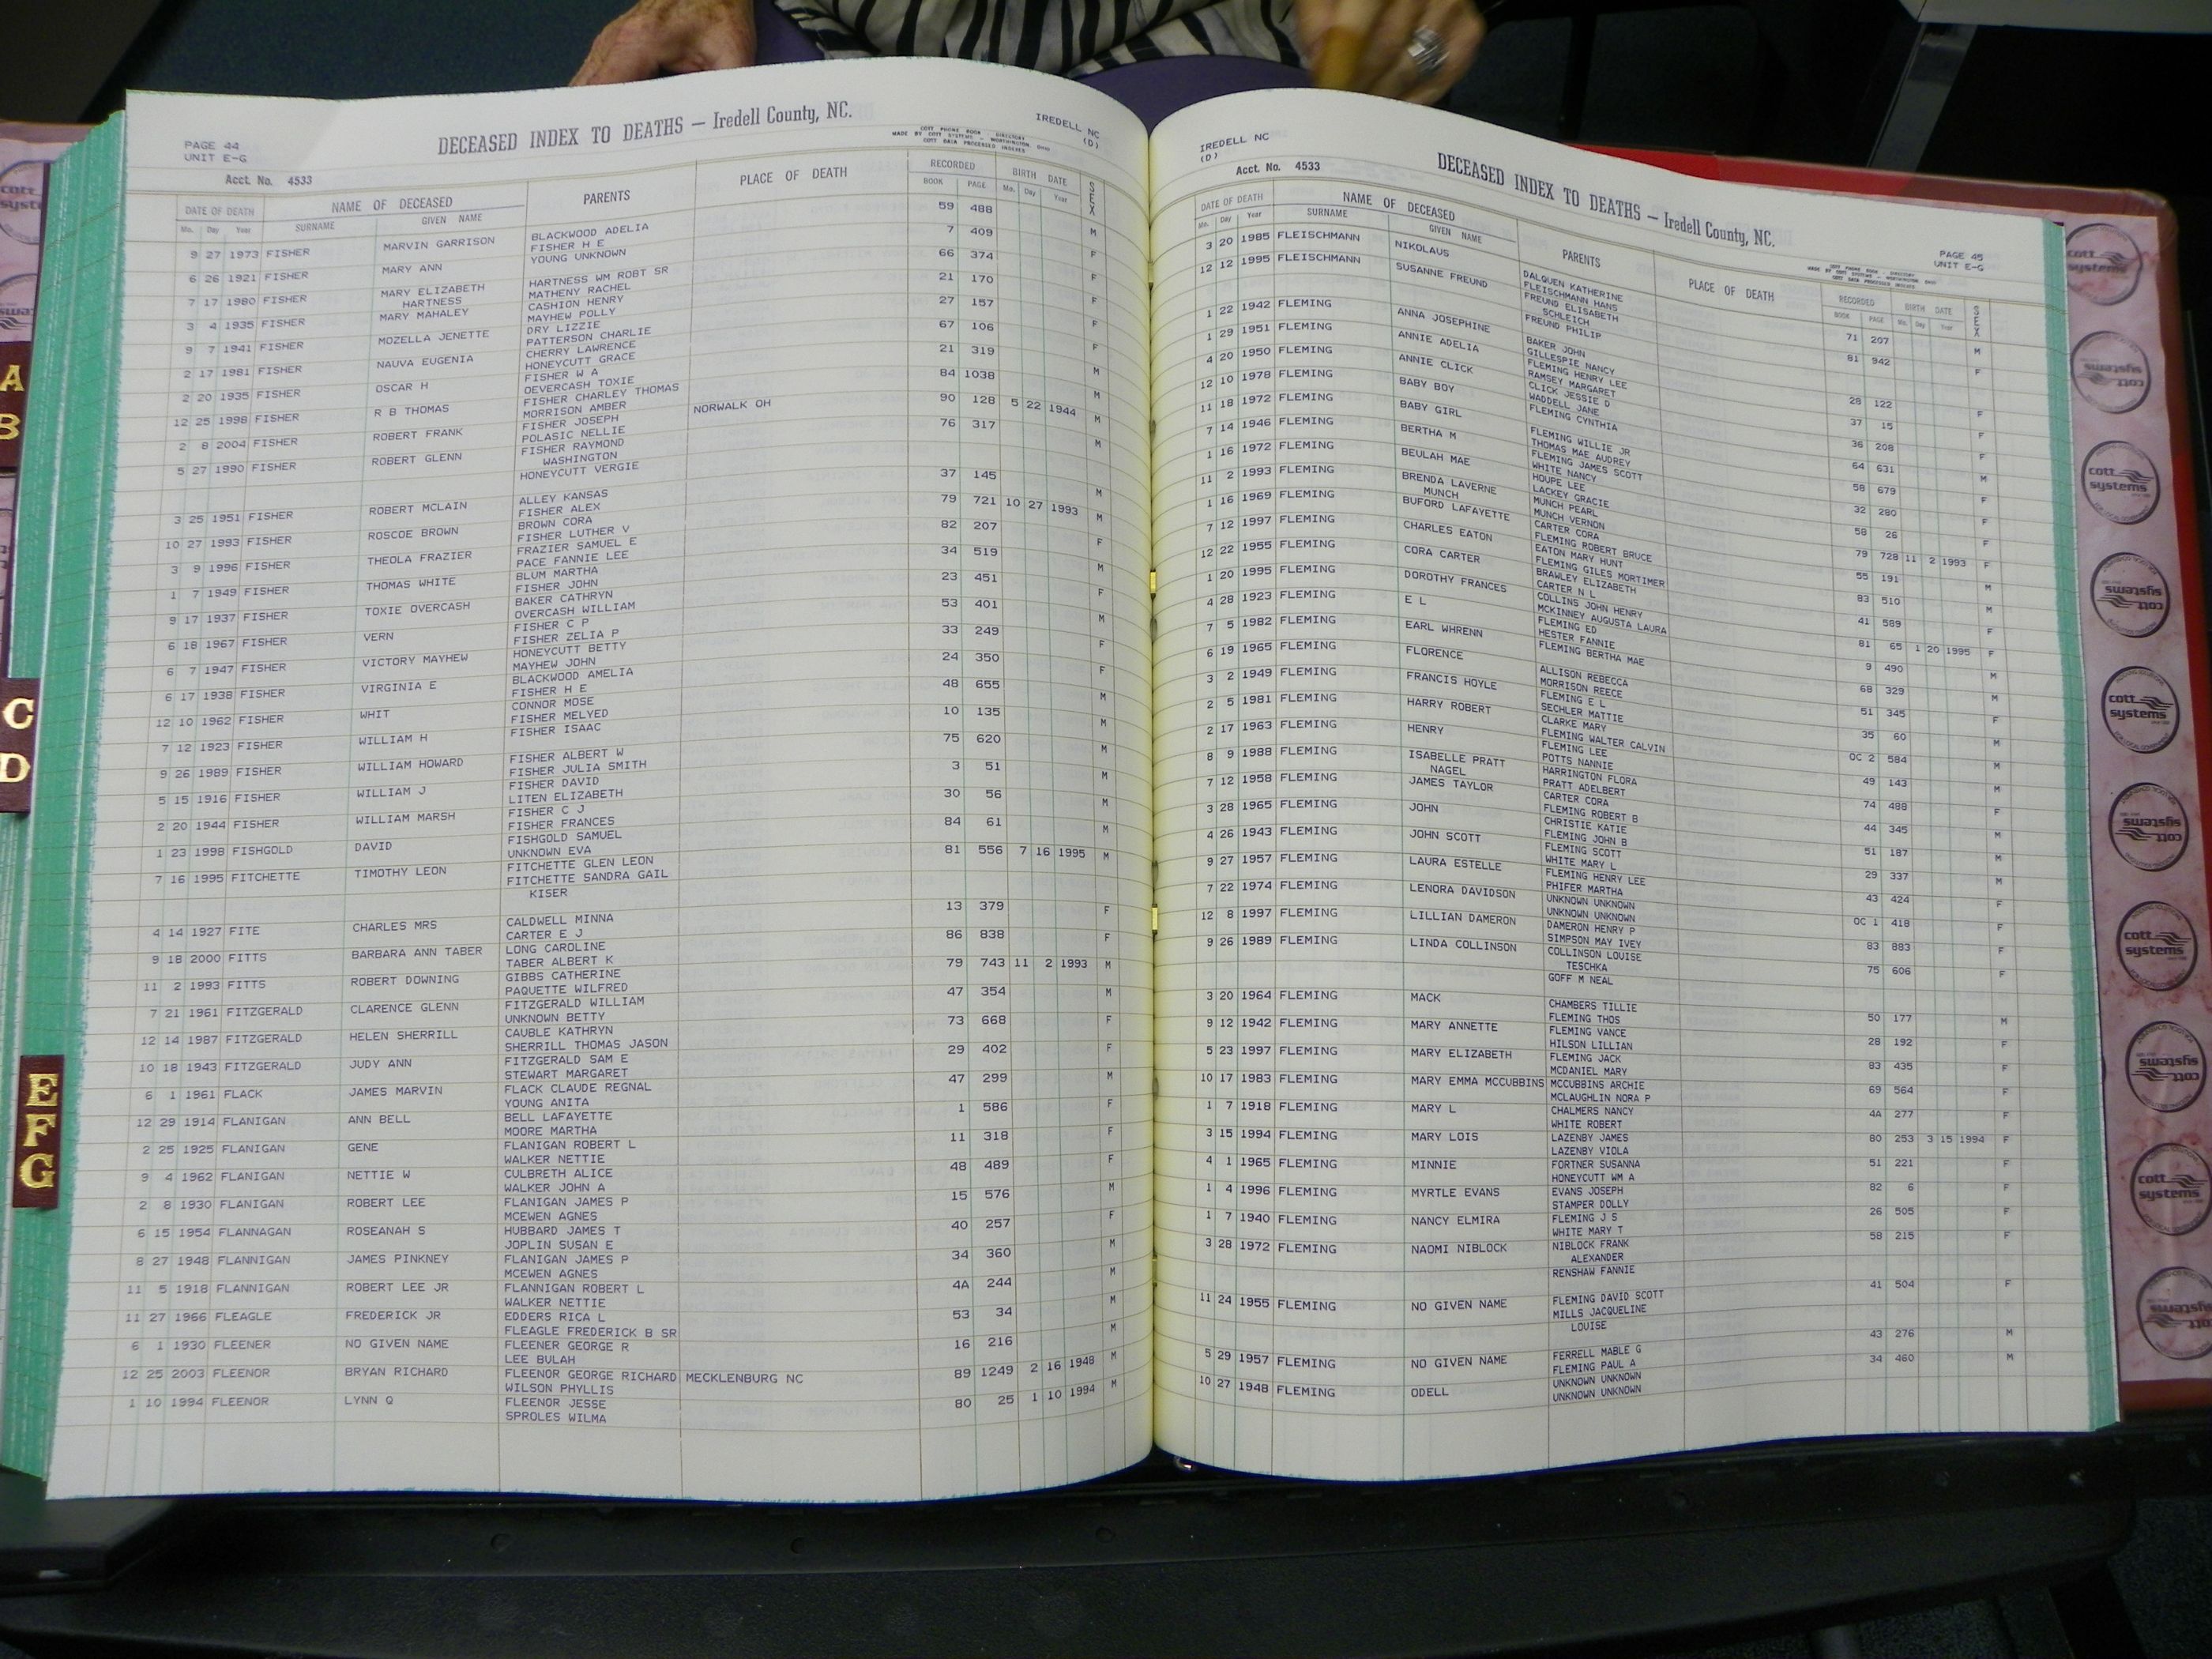 PAGE 44
UNIT E-G
DECEASED INDEX TO DEATHS — Iredell County, NC.
COTT PHONE BOOK - DIRECTORY
MADE BY COTT SYSTEMS - WORTHINGTON, OHIO
COTT DATA PROCESSED INDEXES
IREDELL NC
(D)
Acct. No. 4533
DATE OF DEATH NAME OF DECEASED PARENTS PLACE OF DEATH RECORDED BIRTH DATE SEX
Mo. Day Year SURNAME GIVEN NAME BOOK PAGE Mo. Day Year
9 27 1973 FISHER MARVIN GARRISON BLACKWOOD ADELIA 59 488 M
FISHER H E
6 26 1921 FISHER MARY ANN YOUNG UNKNOWN 7 409 F
7 17 1980 FISHER MARY ELIZABETH HARTNESS WM ROBT SR 66 374 F
HARTNESS MATHENY RACHEL
3 4 1935 FISHER MARY MAHALEY CASHION HENRY 21 170 F
MAYHEW POLLY
9 7 1941 FISHER MOZELLA JENETTE DRY LIZZIE 27 157 F
PATTERSON CHARLIE
2 17 1981 FISHER NAUVA EUGENIA CHERRY LAWRENCE 67 106 F
HONEYCUTT GRACE
2 20 1935 FISHER OSCAR H FISHER W A 21 319 M
OEVERCASH TOXIE
12 25 1998 FISHER R B THOMAS FISHER CHARLEY THOMAS 84 1038 M
MORRISON AMBER
2 8 2004 FISHER ROBERT FRANK FISHER JOSEPH NORWALK OH 90 128 5 22 1944 M
POLASIC NELLIE
5 27 1990 FISHER ROBERT GLENN FISHER RAYMOND 76 317 M
WASHINGTON
HONEYCUTT VERGIE
3 25 1951 FISHER ROBERT MCLAIN ALLEY KANSAS 37 145 M
FISHER ALEX
10 27 1993 FISHER ROSCOE BROWN BROWN CORA 79 721 10 27 1993 M
FISHER LUTHER V
3 9 1996 FISHER THEOLA FRAZIER FRAZIER SAMUEL E 82 207 F
PACE FANNIE LEE
1 7 1949 FISHER THOMAS WHITE BLUM MARTHA 34 519 M
FISHER JOHN
9 17 1937 FISHER TOXIE OVERCASH BAKER CATHRYN 23 451 F
OVERCASH WILLIAM
6 18 1967 FISHER VERN FISHER C P 53 401 M
FISHER ZELIA P
6 7 1947 FISHER VICTORY MAYHEW HONEYCUTT BETTY 33 249 F
MAYHEW JOHN
6 17 1938 FISHER VIRGINIA E BLACKWOOD AMELIA 24 350 F
FISHER H E
12 10 1962 FISHER WHIT CONNOR MOSE 48 655 M
FISHER MELYED
7 12 1923 FISHER WILLIAM H FISHER ISAAC 10 135 M
9 26 1989 FISHER WILLIAM HOWARD FISHER ALBERT W 75 620 M
FISHER JULIA SMITH
5 15 1916 FISHER WILLIAM J FISHER DAVID 3 51 M
LITEN ELIZABETH
2 20 1944 FISHER WILLIAM MARSH FISHER C J 30 56 M
FISHER FRANCES
1 23 1998 FISHGOLD DAVID FISHGOLD SAMUEL 84 61 M
UNKNOWN EVA
7 16 1995 FITCHETTE TIMOTHY LEON FITCHETTE GLEN LEON 81 556 7 16 1995 M
FITCHETTE SANDRA GAIL
KISER
4 14 1927 FITE CHARLES MRS CALDWELL MINNA 13 379 F
CARTER E J
9 18 2000 FITTS BARBARA ANN TABER LONG CAROLINE 86 838 F
TABER ALBERT K
11 2 1993 FITTS ROBERT DOWNING GIBBS CATHERINE 79 743 11 2 1993 M
PAQUETTE WILFRED
7 21 1961 FITZGERALD CLARENCE GLENN FITZGERALD WILLIAM 47 354 M
UNKNOWN BETTY
12 14 1987 FITZGERALD HELEN SHERRILL CAUBLE KATHRYN 73 668 F
SHERRILL THOMAS JASON
10 18 1943 FITZGERALD JUDY ANN FITZGERALD SAM E 29 402 F
STEWART MARGARET
6 1 1961 FLACK JAMES MARVIN FLACK CLAUDE REGNAL 47 299 M
YOUNG ANITA
12 29 1914 FLANIGAN ANN BELL BELL LAFAYETTE 1 586 F
MOORE MARTHA
2 25 1925 FLANIGAN GENE FLANIGAN ROBERT L 11 318 F
WALKER NETTIE
9 4 1962 FLANIGAN NETTIE W CULBRETH ALICE 48 489 F
WALKER JOHN A
2 8 1930 FLANIGAN ROBERT LEE FLANIGAN JAMES P 15 576 M
MCEWEN AGNES
6 15 1954 FLANNAGAN ROSEANAH S HUBBARD JAMES T 40 257 F
JOPLIN SUSAN E
8 27 1948 FLANNIGAN JAMES PINKNEY FLANIGAN JAMES P 34 360 M
MCEWEN AGNES
11 5 1918 FLANNIGAN ROBERT LEE JR FLANNIGAN ROBERT L 4A 244 M
WALKER NETTIE
11 27 1966 FLEAGLE FREDERICK JR EDDERS RICA L 53 34 M
FLEAGLE FREDERICK B SR
6 1 1930 FLEENER NO GIVEN NAME FLEENER GEORGE R 16 216 M
LEE BULAH
12 25 2003 FLEENOR BRYAN RICHARD FLEENOR GEORGE RICHARD MECKLENBURG NC 89 1249 2 16 1948 M
WILSON PHYLLIS
1 10 1994 FLEENOR LYNN Q FLEENOR JESSE 80 25 1 10 1994 M
SPROLES WILMA
IREDELL NC
(D)
DECEASED INDEX TO DEATHS — Iredell County, NC.
PAGE 45
UNIT E-G
COTT PHONE BOOK - DIRECTORY
MADE BY COTT SYSTEMS - WORTHINGTON, OHIO
COTT DATA PROCESSED INDEXES
Acct. No. 4533
DATE OF DEATH NAME OF DECEASED PARENTS PLACE OF DEATH RECORDED BIRTH DATE SEX
Mo. Day Year SURNAME GIVEN NAME BOOK PAGE Mo. Day Year
3 20 1985 FLEISCHMANN NIKOLAUS DALQUEN KATHERINE 71 207 M
FLEISCHMANN HANS
12 12 1995 FLEISCHMANN SUSANNE FREUND FREUND ELISABETH 81 942 F
SCHLEICH
FREUND PHILIP
1 22 1942 FLEMING ANNA JOSEPHINE BAKER JOHN 28 122 F
GILLESPIE NANCY
1 29 1951 FLEMING ANNIE ADELIA FLEMING HENRY LEE 37 15 F
RAMSEY MARGARET
4 20 1950 FLEMING ANNIE CLICK CLICK JESSIE D 36 208 F
WADDELL JANE
12 10 1978 FLEMING BABY BOY FLEMING CYNTHIA 64 631 M
11 18 1972 FLEMING BABY GIRL FLEMING WILLIE JR 58 679 F
THOMAS MAE AUDREY
7 14 1946 FLEMING BERTHA M FLEMING JAMES SCOTT 32 280 F
WHITE NANCY
1 16 1972 FLEMING BEULAH MAE HOUPE LEE 58 26 F
LACKEY GRACIE
11 2 1993 FLEMING BRENDA LAVERNE MUNCH PEARL 79 728 11 2 1993 F
MUNCH MUNCH VERNON
1 16 1969 FLEMING BUFORD LAFAYETTE CARTER CORA 55 191 M
FLEMING ROBERT BRUCE
7 12 1997 FLEMING CHARLES EATON EATON MARY HUNT 83 510 M
FLEMING GILES MORTIMER
12 22 1955 FLEMING CORA CARTER BRAWLEY ELIZABETH 41 589 F
CARTER N L
1 20 1995 FLEMING DOROTHY FRANCES COLLINS JOHN HENRY 81 65 1 20 1995 F
MCKINNEY AUGUSTA LAURA
4 28 1923 FLEMING E L FLEMING ED 9 490 M
HESTER FANNIE
7 5 1982 FLEMING EARL WHRENN FLEMING BERTHA MAE 68 329 M
6 19 1965 FLEMING FLORENCE ALLISON REBECCA 51 345 F
MORRISON REECE
3 2 1949 FLEMING FRANCIS HOYLE FLEMING E L 35 60 M
SECHLER MATTIE
2 5 1981 FLEMING HARRY ROBERT CLARKE MARY OC 2 584 M
FLEMING WALTER CALVIN
2 17 1963 FLEMING HENRY FLEMING LEE 49 143 M
POTTS NANNIE
8 9 1988 FLEMING ISABELLE PRATT HARRINGTON FLORA 74 488 F
NAGEL PRATT ADELBERT
7 12 1958 FLEMING JAMES TAYLOR CARTER CORA 44 345 M
FLEMING ROBERT B
3 28 1965 FLEMING JOHN CHRISTIE KATIE 51 187 M
FLEMING JOHN B
4 26 1943 FLEMING JOHN SCOTT FLEMING SCOTT 29 337 M
WHITE MARY L
9 27 1957 FLEMING LAURA ESTELLE FLEMING HENRY LEE 43 424 F
PHIFER MARTHA
7 22 1974 FLEMING LENORA DAVIDSON UNKNOWN UNKNOWN OC 1 418 F
UNKNOWN UNKNOWN
12 8 1997 FLEMING LILLIAN DAMERON DAMERON HENRY P 83 883 F
SIMPSON MAY IVEY
9 26 1989 FLEMING LINDA COLLINSON COLLINSON LOUISE 75 606 F
TESCHKA
GOFF M NEAL
3 20 1964 FLEMING MACK CHAMBERS TILLIE 50 177 M
FLEMING THOS
9 12 1942 FLEMING MARY ANNETTE FLEMING VANCE 28 192 F
HILSON LILLIAN
5 23 1997 FLEMING MARY ELIZABETH FLEMING JACK 83 435 F
MCDANIEL MARY
10 17 1983 FLEMING MARY EMMA MCCUBBINS MCCUBBINS ARCHIE 69 564 F
MCLAUGHLIN NORA P
1 7 1918 FLEMING MARY L CHALMERS NANCY 4A 277 F
WHITE ROBERT
3 15 1994 FLEMING MARY LOIS LAZENBY JAMES 80 253 3 15 1994 F
LAZENBY VIOLA
4 1 1965 FLEMING MINNIE FORTNER SUSANNA 51 221 F
HONEYCUTT WM A
1 4 1996 FLEMING MYRTLE EVANS EVANS JOSEPH 82 6 F
STAMPER DOLLY
1 7 1940 FLEMING NANCY ELMIRA FLEMING J S 26 505 F
WHITE MARY T
3 28 1972 FLEMING NAOMI NIBLOCK NIBLOCK FRANK 58 215 F
ALEXANDER
RENSHAW FANNIE
11 24 1955 FLEMING NO GIVEN NAME FLEMING DAVID SCOTT 41 504 F
MILLS JACQUELINE
LOUISE
5 29 1957 FLEMING NO GIVEN NAME FERRELL MABLE G 43 276 M
FLEMING PAUL A
10 27 1948 FLEMING ODELL UNKNOWN UNKNOWN 34 460 M
UNKNOWN UNKNOWN
A
B
C
D
E
F
G
cott systems
cott systems
cott systems
cott systems
cott systems
cott systems
cott systems
cott systems
cott systems